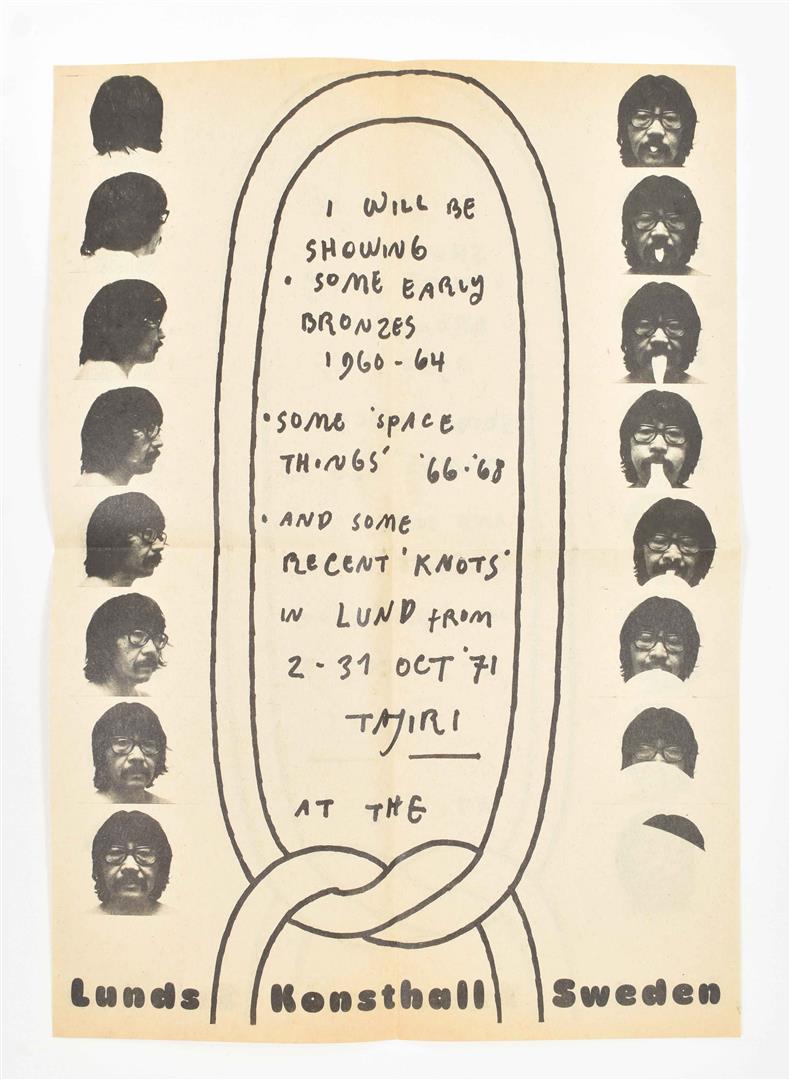 I WILL BE
SHOWING
• SOME EARLY
BRONZES
1960-64
• SOME 'SPACE
THINGS' '66-'68
• AND SOME
RECENT 'KNOTS'
IN LUND FROM
2-31 OCT '71
TAJIRI
AT THE
Lunds Konsthall Sweden